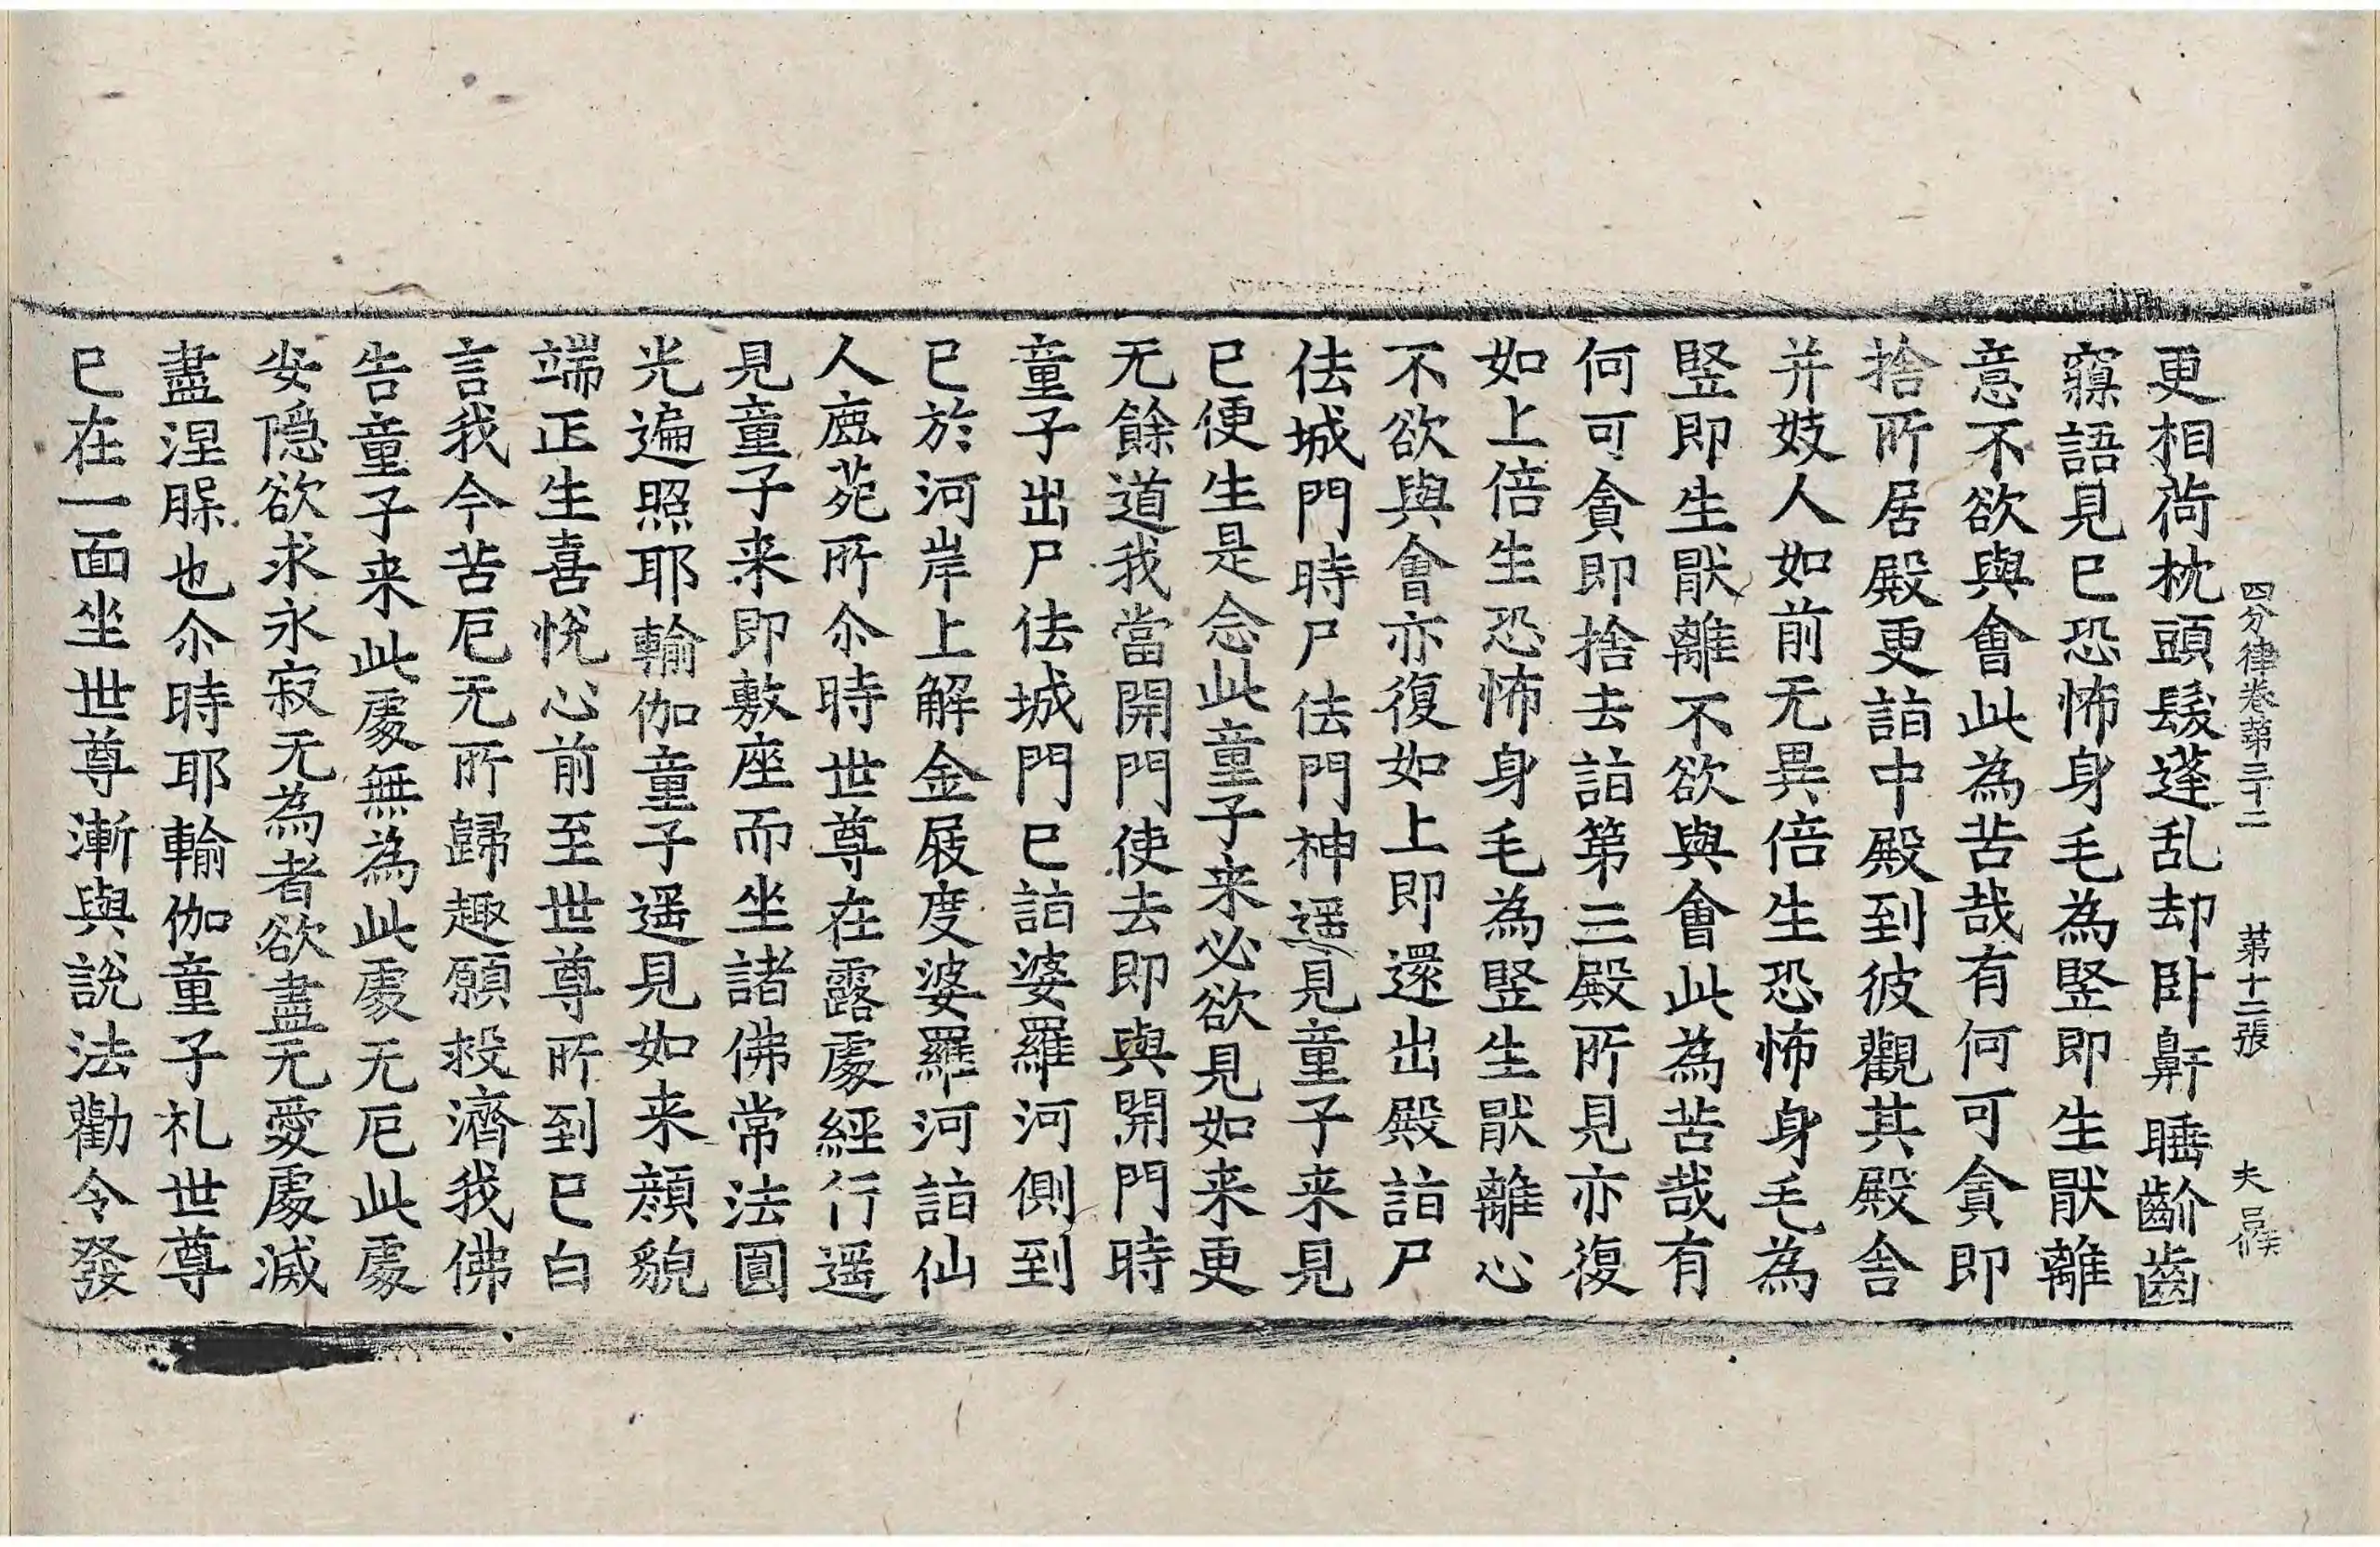 四分律卷第三十二 第十二張 夫
更相荷枕頭髮蓬乱却卧鼾睡齘齒
寱語見已恐怖身毛為竪即生猒離
意不欲與會此為苦哉有何可貪即
捨所居殿更詣中殿到彼觀其殿舍
并妓人如前无異倍生恐怖身毛為
竪即生猒離不欲與會此為苦哉有
何可貪即捨去詣第三殿所見亦復
如上倍生恐怖身毛為竪生猒離心
不欲與會亦復如上即還出殿詣尸
佉城門時尸佉門神遥見童子来見
已便生是念此童子来必欲見如来更
无餘道我當開門使去即與開門時
童子出尸佉城門已詣婆羅河側到
已於河岸上解金屐度婆羅河詣仙
人鹿苑所尒時世尊在露處經行遥
見童子来即敷座而坐諸佛常法圓
光遍照耶輸伽童子遥見如来顔貌
端正生喜悅心前至世尊所到已白
言我今苦厄无所歸趣願救濟我佛
告童子来此處無為此處无厄此處
安隠欲求永寂无為者欲盡无愛處滅
盡涅槃也尒時耶輸伽童子礼世尊
已在一面坐世尊漸與說法勸令發